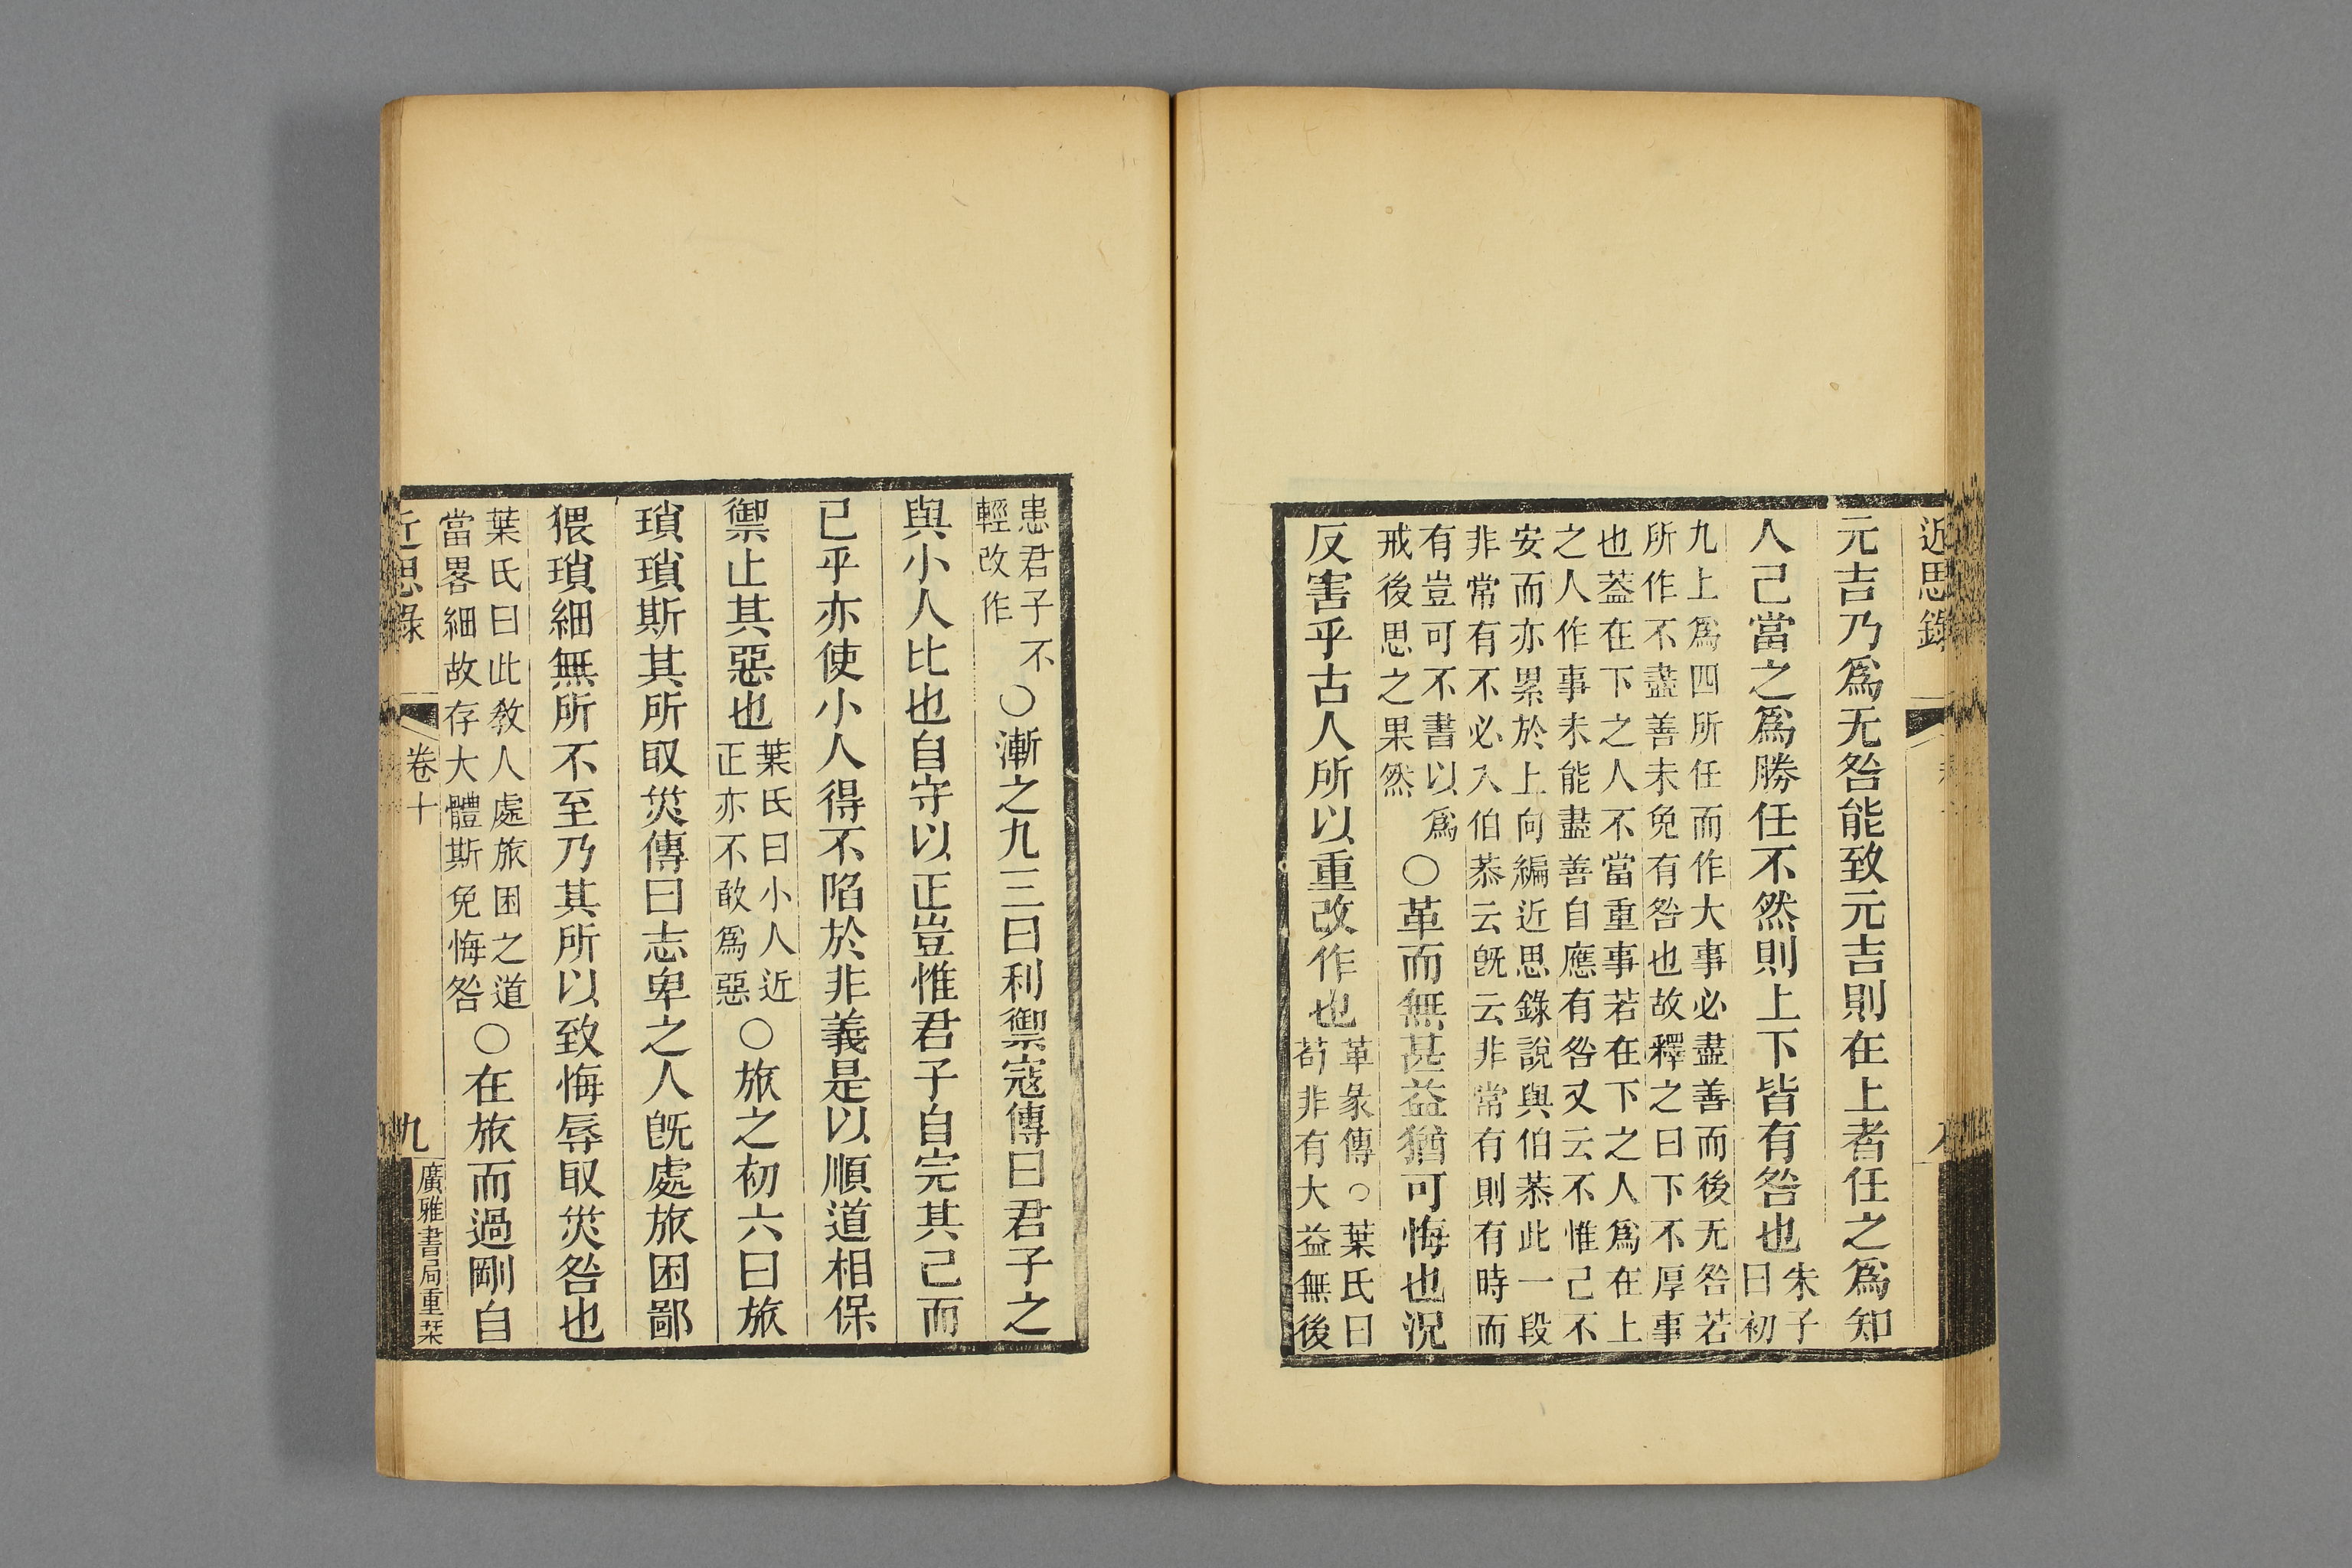 近思錄
元吉乃爲无咎能致元吉則在上者任之爲知
人己當之爲勝任不然則上下皆有咎也朱子
曰初
九上爲四所任而作大事必盡善而後无咎若
所作不盡善未免有咎也故釋之曰下不厚事
也葢在下之人不當重事若在下之人爲在上
之人作事未能盡善自應有咎又云不惟己不
安而亦累於上向編近思錄說與伯恭此一段
非常有不必入伯恭云旣云非常有則有時而
有豈可不書以爲
戒後思之果然
○革而無甚益猶可悔也況
反害乎古人所以重改作也
革彖傳○葉氏曰
苟非有大益無後
患君子不
輕改作
○漸之九三曰利禦寇傳曰君子之
與小人比也自守以正豈惟君子自完其己而
已乎亦使小人得不陷於非義是以順道相保
禦止其惡也
葉氏曰小人近
正亦不敢爲惡
○旅之初六曰旅
瑣瑣斯其所取災傳曰志卑之人旣處旅困鄙
猥瑣細無所不至乃其所以致悔辱取災咎也
葉氏曰此教人處旅困之道
當畧細故存大體斯免悔咎
○在旅而過剛自
近思錄
卷十
九
廣雅書局重栞